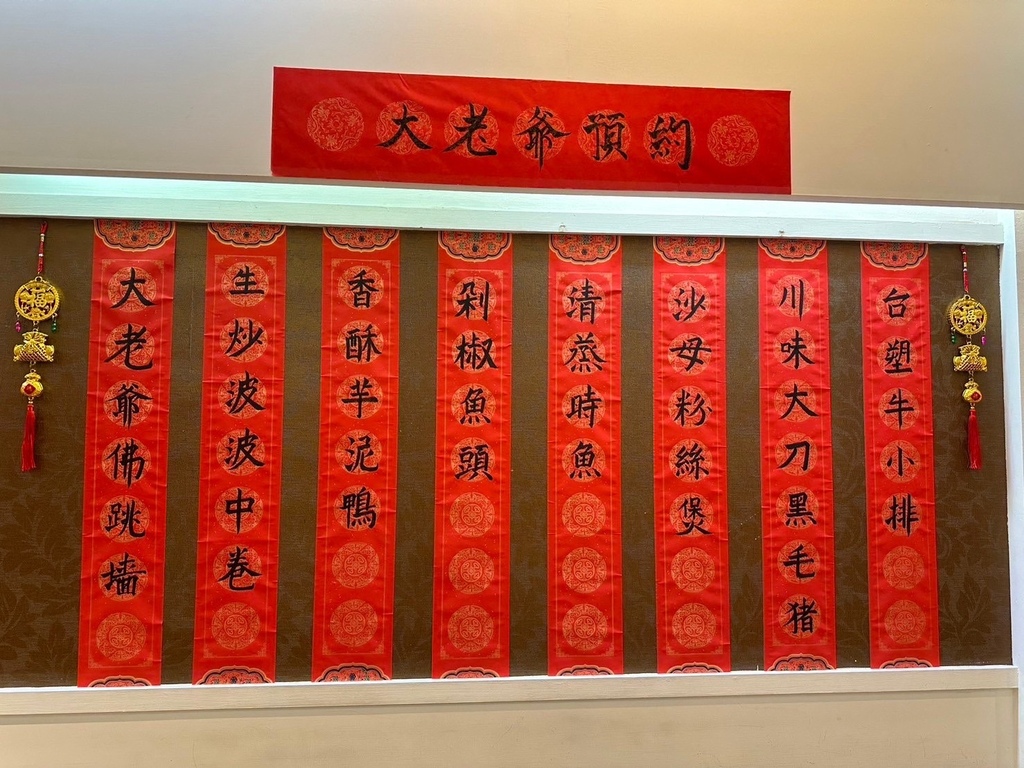 大老爺預約
大老爺佛跳墙
生炒波波中卷
香酥芋泥鴨
剁椒魚頭
清蒸時魚
沙母粉絲煲
川味大刀黑毛猪
台塑牛小排
福
福